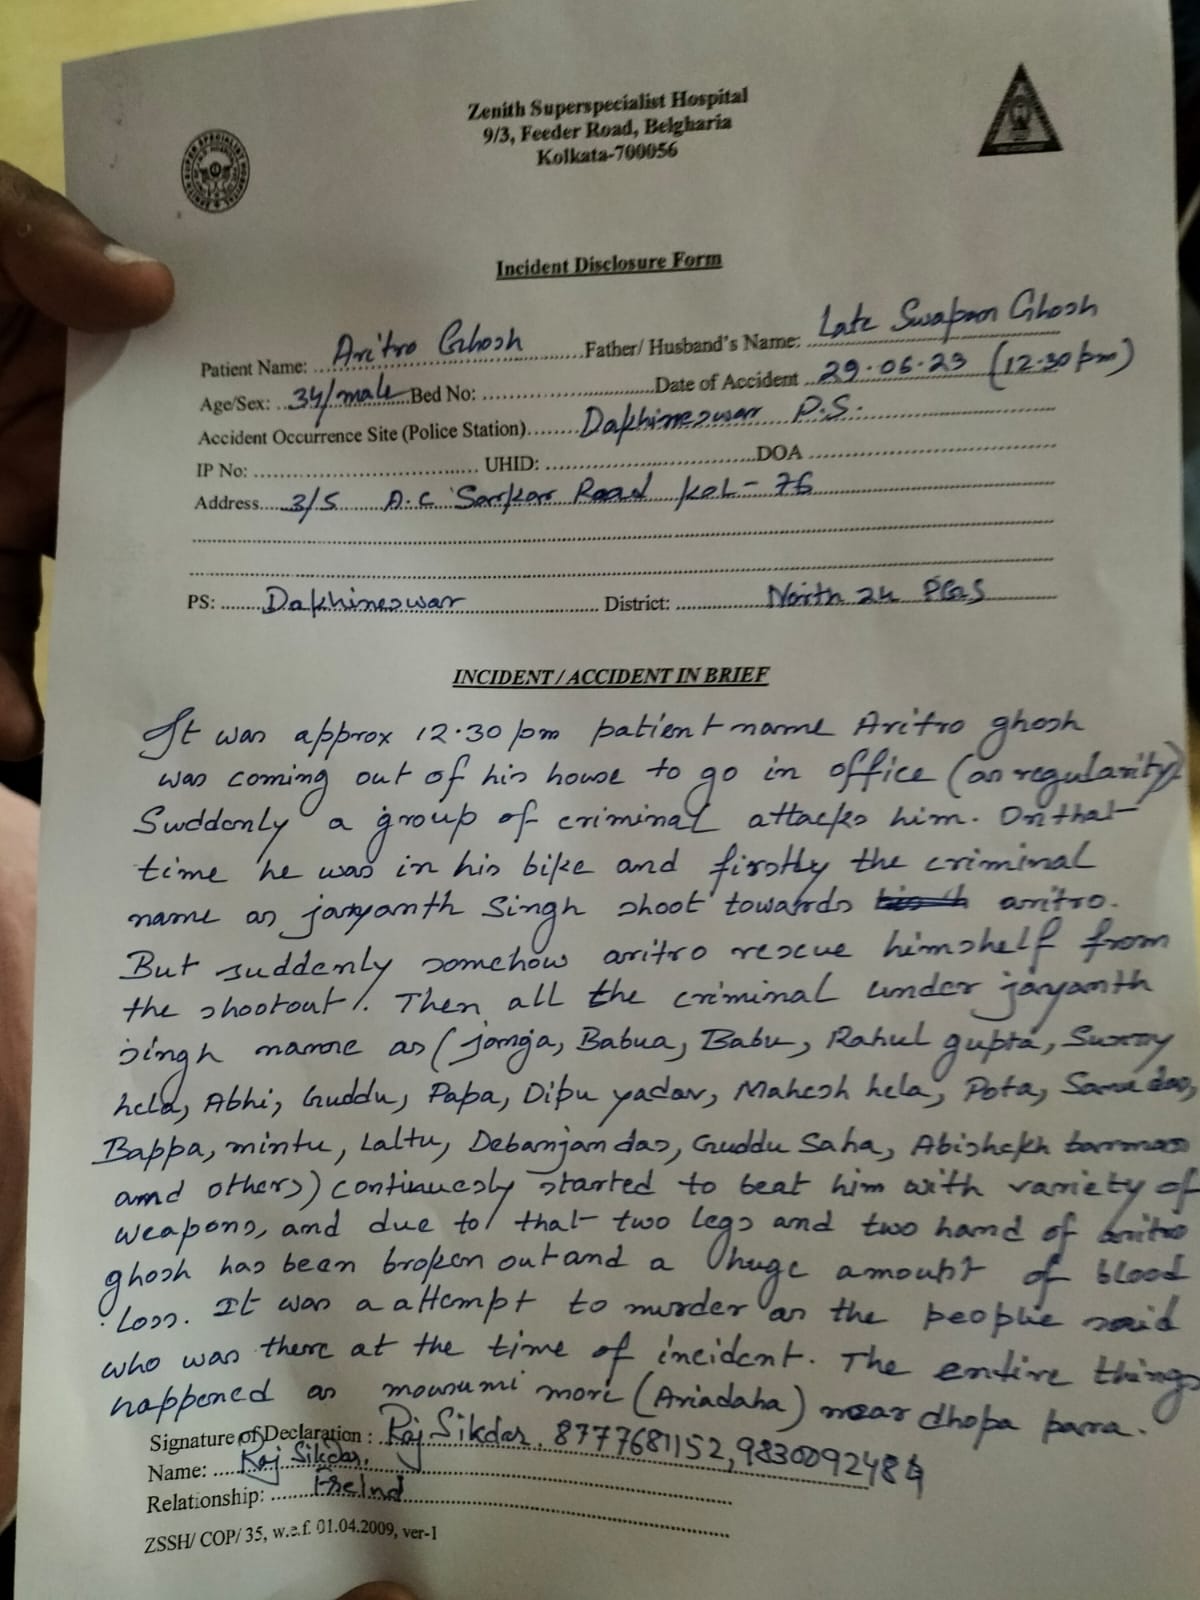 Zenith Superspecialist Hospital
9/3, Feeder Road, Belgharia
Kolkata-700056
Incident Disclosure Form
Patient Name: Aritro Ghosh Father/ Husband's Name: Late Swapan Ghosh
Age/Sex: 34/male Bed No: Date of Accident 29.06.23 (12.30 pm)
Accident Occurrence Site (Police Station) Dakhineswar P.S.
IP No: UHID: DOA
Address 3/5 A.C Sarkar Road KOL-76
PS: Dakhineswar District: North 24 PGS
INCIDENT / ACCIDENT IN BRIEF
It was approx 12.30 pm patient name Aritro ghosh
was coming out of his house to go in office (as regularity)
Suddenly a group of criminal attacks him. On that
time he was in his bike and firstly the criminal
name as jayanth Singh shoot towards aritro.
But suddenly somehow aritro rescue himshelf from
the shootout. Then all the criminal under jayanth
singh name as (jonga, Babua, Babu, Rahul gupta, Sunny
hela, Abhi, Guddu, Papa, Dipu yadav, Mahesh hela, Pota, Sana das,
Bappa, mintu, Laltu, Debanjan das, Guddu Saha, Abishekh barman
and others) continuesly started to beat him with variety of
weapons, and due to that two legs and two hand of aritro
ghosh has been broken out and a huge amount of blood
loss. It was a attempt to murder as the people said
who was there at the time of incident. The entire things
happened as mousumi more (Ariadaha) near dhopa para.
Signature of Declaration : Raj Sikdar. 8777681152, 9830092484
Name: Raj Sikdar,
Relationship: Freind
ZSSH/ COP/ 35, w.e.f. 01.04.2009, ver-1